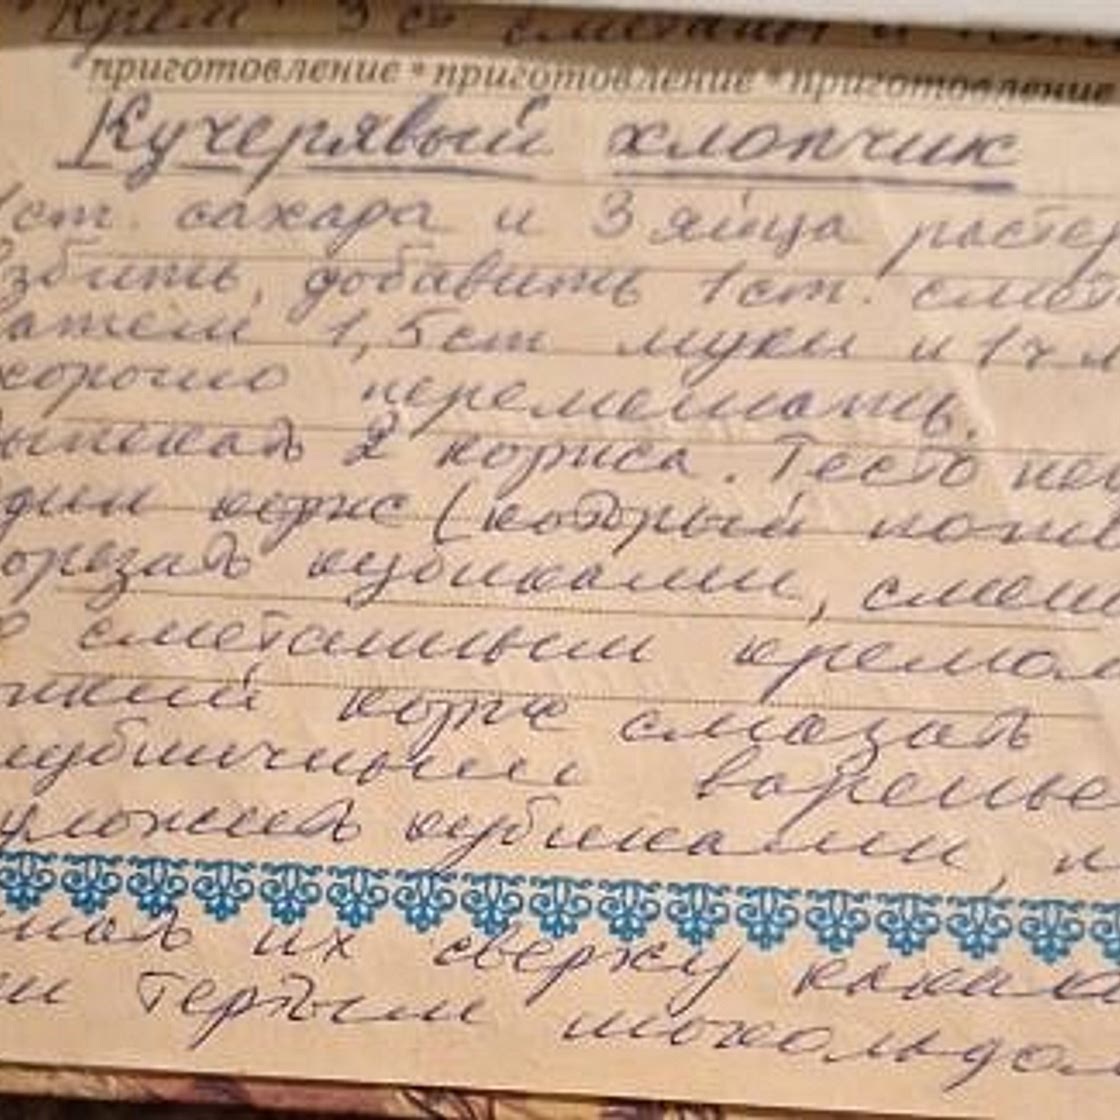 "Крем" 3 ст сметаны и
приготовление * приготовление * приготовление
Кучерявый хлопчик
1ст. сахара и 3 яйца растер
взбить, добавить 1ст. смет
затем 1,5ст муки и 1 ч л
хорошо перемешать.
выпекать 2 коржа. Тесто
один корж (который
порезать кубиками, смеш
с сметанным кремом
нижний корж смазать
клубничным варенье
уложить кубиками, п
их сверху
или тертым шокольдом